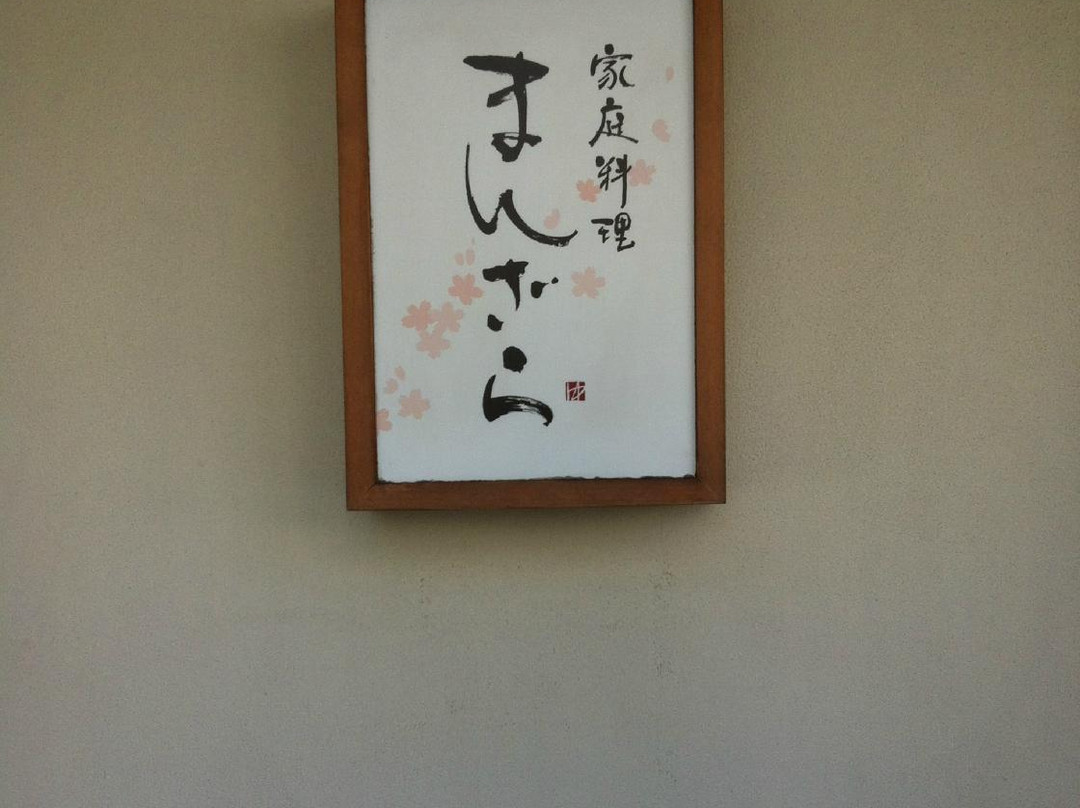 家庭料理
まんざら